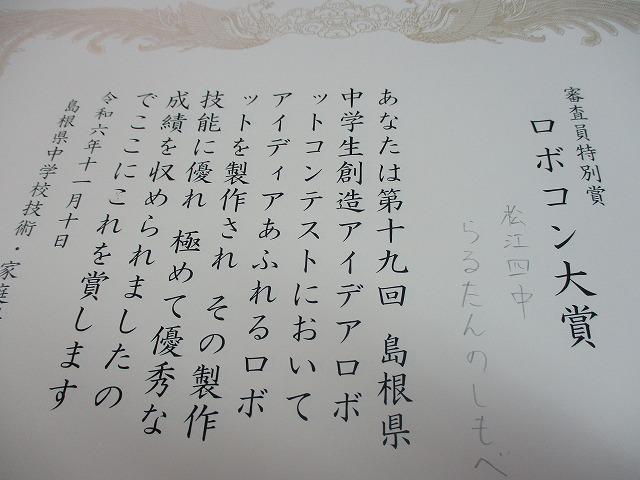 審査員特別賞
ロボコン大賞
松江四中
らるたんのしもべ
あなたは第十九回 島根県
中学生創造アイデアロボ
ットコンテストにおいて
アイディアあふれるロボ
ットを製作され その製作
技能に優れ 極めて優秀な
成績を収められましたの
でここにこれを賞します
令和六年十一月十日
島根県中学校技術・家庭